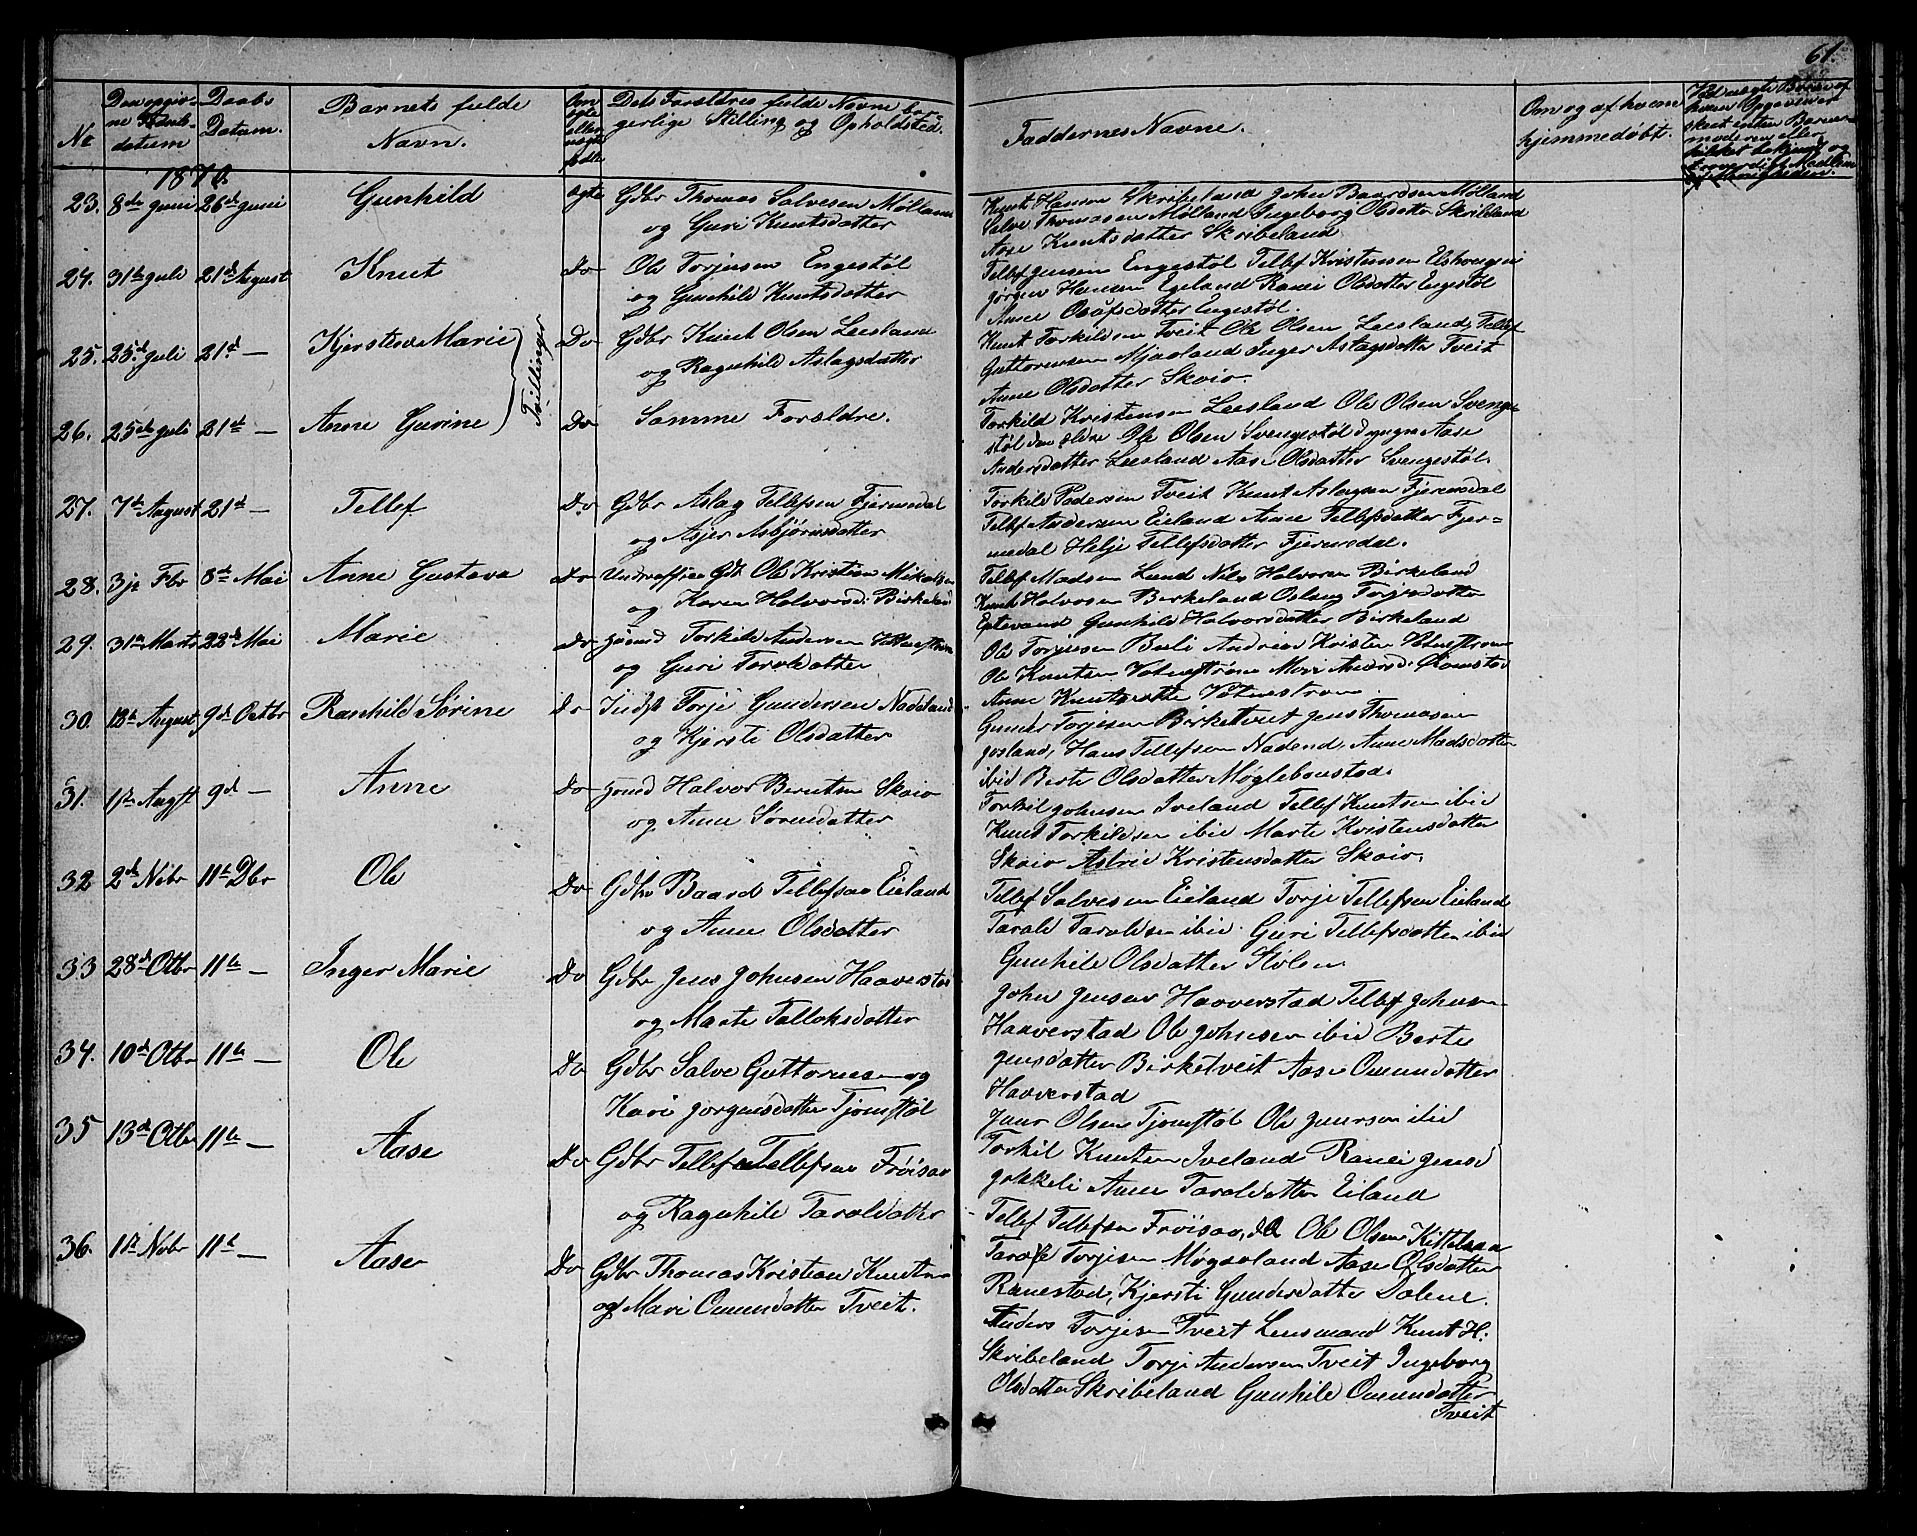 61.
No
Den opgivne Fødselsdatum
Daabs Datum.
Barnets fulde Navn.
Om ægte eller uægte født
Dets Forældres fulde Navne borgerlige Stilling og Opholdsted.
Faddernes Navne.
Om og af hvem hjemmedøbt.
1870.
23. 8de Juni 26de Juni Gunhild ægte Gdbr Thomas Salvesen Mølland
og Guri Knutsdatter
Knut Hansen Skribeland John Baardsen Mølland
Salve Thomasen Mølland Ingeborg Olsdatter Skribeland
Aase Knutsdatter Skribeland
24. 31te Juli 21de August Knut Do Ole Torjusen Engestøl
og Gunhild Knutsdatter
Tellef Jensen Engestøl Tellef Kristensen
Jørgen Hansen Egeland Ranei Olsdatter Engestøl
Anne Olafsdatter Engestøl.
25. 25de Juli 21de — Kjersten Marie Do Gdbr Knut Olsen Leesland
og Ragnhild Aslagsdatter
Tvillinger
Knut Torkildsen Tveit Ole Olsen Leesland, Tellef
Guttormsen Mjaaland Inger Aslagsdatter Tveit
Anne Olsdatter Skaio.
26. 25de Juli 21de — Anne Gurine Do Samme Forældre.
Torkild Kristensen Leesland Ole Olsen Svenge
støl den ældre Ole Olsen Svengestøl d yngre Aase
Andersdatter Leesland Aase Olsdatter Svengestøl.
27. 7de August 21de — Tellef Do Gdbr Aslag Tellefsen Fjermedal
og Asjer Asbjørnsdatter
Torkild Pedersen Tveit Knut Aslagsen Fjermedal
Tellef Andersen Eieland Anne Tellefsdatter Fjer=
medal Helje Tellefsdatter Fjermedal.
28. 3je Fbr 8de Mai Anne Gustava Do Underofficer Ole Kristian Mikalsen
og Karen Halvorsd: Birkeland
Tellef Madsen Lund Nils Halvorsen Birkeland
Knut Halvorsen Birkeland Aslaug Torjusdatter
Eptevand Gunhild Halvorsdatter Birkeland
29. 31te Marts 22de Mai Marie Do Huusmd Torkild Andersen Vatnestrøm
og Guri Taroldatter
Ole Torjusen Buli Andreas Kristen Vatnestrøm
Ole Knutsen Vatnestrøm Mari Andersd:
Anne Knutsdatter Vatnestrøm.
30. 12te August 9de Octbr Ranhild Sørine do Indst Torje Gundersen Nadeland
og Kjersti Olsdatter
Gunder Torjesen Birketveit Jens Thomasen
Josland, Hans Tellefsen Nadend, Anne Madsdatter
ibid Berte Olsdatter Møglebonstad.
31. 1ste Augst 9de — Anne Do Huusmd Halvor Berntsen Skaio
og Anne Sørensdatter
Torkil Johnsen Iveland Tellef Knutsen ibid
Knut Torkildsen ibid Marte Kristensdatter
Skaio Astrid Kristensdatter Skaio.
32 2de Nobr 11te Dbr Ole Do Gdbr Baard Tellefsen Eieland
og Anne Olsdatter
Tellef Salvesen Eieland Torje Tellefsen Eieland
Tarald Taraldsen ibid. Guri Tellefsdatter ibid
Gunhild Olsdatter Stølen
33 28de Otbr 11te — Inger Marie Do Gdbr Jens Johnsen Haaverstad
og Marte Talloksdatter
John Jensen Haaverstad Tellef Johnsen
Haaverstad Ole Johnsen ibid Berte
Jensdatter Birketveit Aase Omundatter
Haaverstad
34. 10de Otbr 11te — Ole Do Gdbr Salve Guttormsen og
Kari Jørgensdatter Tjomstøl
Jaur Olsen Tjomstøl Ole Jaursen ibid
Torkil Knutsen Iveland Ranei Jensd
Jokkeli Anne Taroldatter Eiland
35 13de Otbr 11te — Aase Do Gdbr Tellef Tellefsen Frøisaa
og Ragnhild Taroldatter
Tellef Tellefsen Frøisaa, d Æ Ole Olsen Kittelsaa
Tarald Torjesen Møgsoland Aase Olsdatter
Ranestad, Kjersti Gundersdatter Dalene.
36. 1ste Nobr 11te — Aase Do Gdbr Thomas Kristian Knutsen
og Mari Omundatter Tveit.
Anders Torjesen Tveit Lensmand Knut H.
Skribeland Torje Andersen Tveit Ingeborg
Olsdatter Skribeland Gunhild Omundatter
Tveit